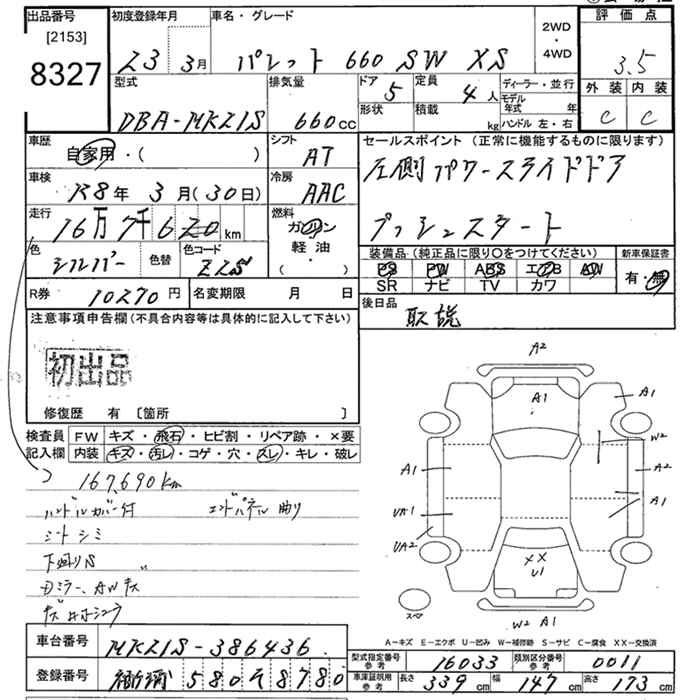 出品番号
[2153]
8327
初度登録年月
23 3月
車名・グレード
パレット 660 SW XS
2WD
・
4WD
評価点
3.5
外装 内装
C C
型式
DBA-MK21S
排気量
660cc
ドア 5
定員 4人
形状
積載 kg
ディーラー・並行
モデル年式 年
ハンドル 左・右
車歴
自家用・( )
シフト
AT
車検
R8年 3月(30日)
冷房
AAC
走行
16万7千620km
燃料
ガソリン
軽油・
( )
色
シルバー
色替
色コード
Z2S
セールスポイント (正常に機能するものに限ります)
左側パワースライドドア
プッシュスタート
装備品(純正品に限り〇をつけてください)
PS PW ABS エアB AW
SR ナビ TV カワ
新車保証書
有・無
R券 10270円
名変期限 月 日
後日品
取説
注意事項申告欄(不具合内容等は具体的に記入して下さい)
初出品
修復歴 有 〔箇所 〕
検査員
記入欄
FW キズ・飛石・ヒビ割・リペア跡・×要
内装 キズ・汚レ・コゲ・穴・スレ・キレ・破レ
167,690km
ハンドルカバー付 エンドパネル曲り
シートシミ
下廻りS
Dミラー、AWキズ
A2
A1
A1
W2
A1
A2
UA1
A1
UA2
XX
U1
スペア
W2 A1
A-キズ E-エクボ U-凹み W-補修跡 S-サビ C-腐食 XX-交換済
車台番号
MK21S-386436
登録番号
580 そ 8780
型式指定番号
参考
16033
類別区分番号
参考
0011
車庫証明用
参考
長さ 339cm
幅 147cm
高さ 173cm